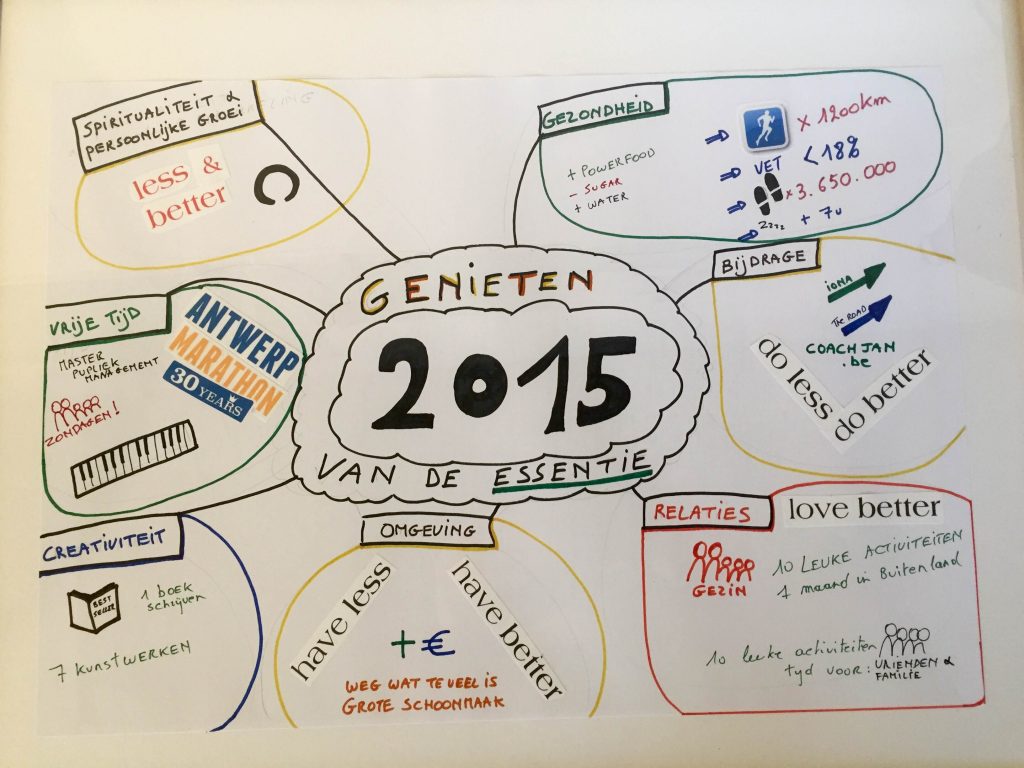 GENIETEN
2015
VAN DE ESSENTIE
SPIRITUALITEIT &
PERSOONLIJKE GROEI
less &
better
GEZONDHEID
+ POWERFOOD
- SUGAR
+ WATER
x 1200km
VET < 18%
x 3.650.000
zzzz + 7u
BIJDRAGE
IONA
THE ROAD
COACHJAN
.be
do less
do better
RELATIES
love better
GEZIN
10 LEUKE ACTIVITEITEN
1 maand in Buitenland
10 leuke activiteiten
tyd voor: VRIENDEN &
FAMILIE
OMGEVING
have less
have better
+ €
WEG WAT TE VEEL IS
GROTE SCHOONMAAK
CREATIVITEIT
BEST
SELLER
1 boek
schrijven
7 KUNSTWERKEN
VRIJE TIJD
MASTER
PUPLIEK
MANAGEMENT
ZONDAGEN!
ANTWERP
MARATHON
30 YEARS